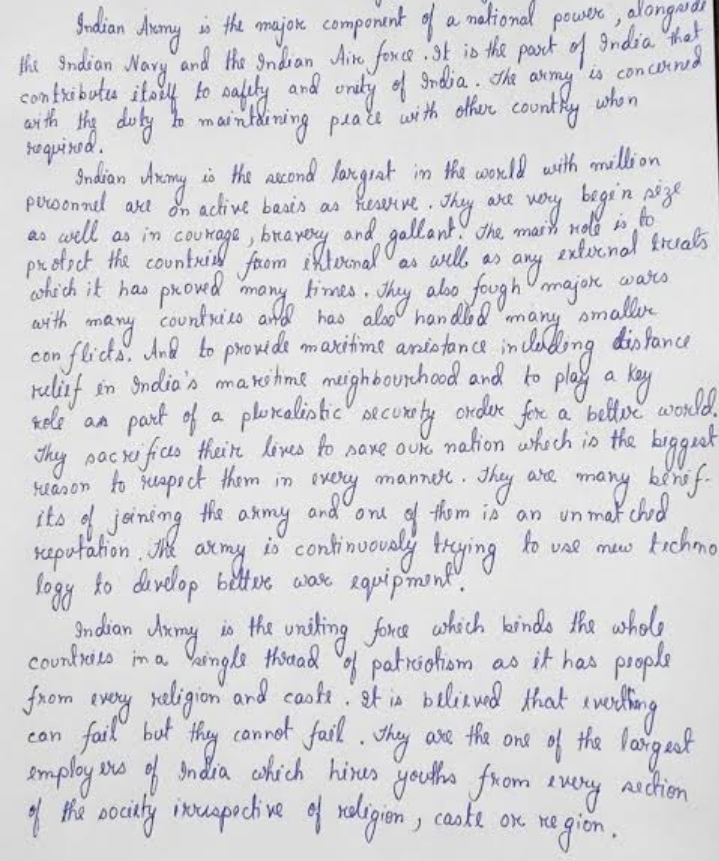 Indian Army is the major component of a national power, alongside
the Indian Navy and the Indian Air force. It is the part of India that
contributes itself to safity and unity of India. The army is concerned
with the duty to maintaining peace with other country when
required.
Indian Army is the second largest in the world with million
personnel are on active basis as reserve. They are very begin size
as well as in courage, bravery and gallant. The main role is to
protect the countries from internal as well as any external treats
which it has proved many times. They also fough major wars
with many countries and has also handled many smaller
conflicts. And to provide maritime assistance including distance
relief in India's maritime neighbourhood and to play a key
role as part of a pluralistic security order for a better world.
They sacrifices their lives to save our nation which is the biggest
reason to respect them in every manner. They are many benef-
its of joining the army and one of them is an unmatched
reputation. The army is continuously trying to use new techno
logy to develop better war equipment.
Indian Army is the uniting force which binds the whole
countries in a single thread of patriotism as it has people
from every religion and caste. It is believed that everthing
can fail but they cannot fail. They are the one of the largest
employers of India which hires youths from every section
of the society irrespective of religion, caste or region.